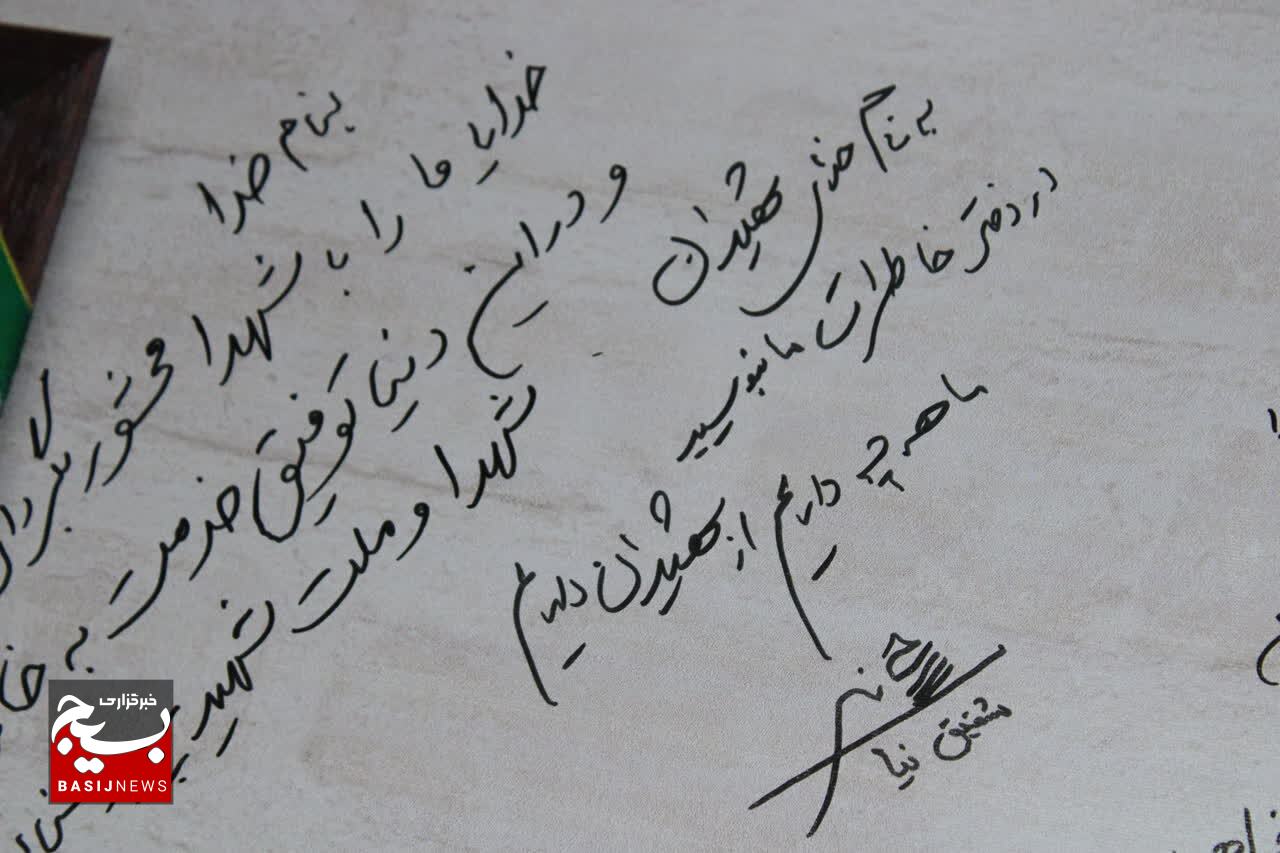 به نام خدای شهیدان
در دفتر خاطرات ما بنویسید
ما هر چه داریم از شهیدان داریم
شفیق نیا
بنام خدا
خدایا ما را با شهدا محشور بگردان
و در این دنیا توفیق خدمت به
شهدا و ملت شهید
خبرگزاری
بسیج
BASIJNEWS